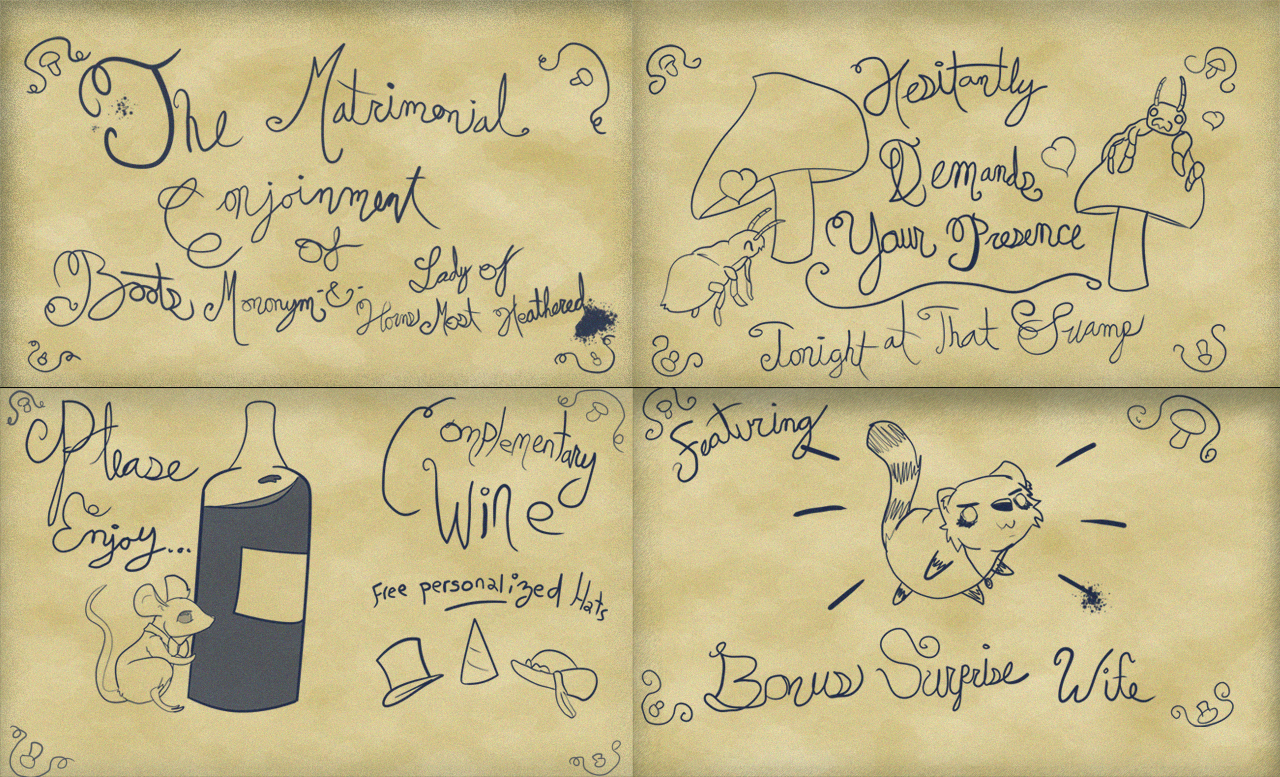 The Matrimonial
Conjoinment
Of
Boots Mononym -&- Lady of
Horns Most Heathered
Hesitantly
Demands
Your Presence
Tonight at That Swamp
Please
Enjoy...
Complementary
Wine
Free personalized Hats
Featuring
Bonus Surprise Wife